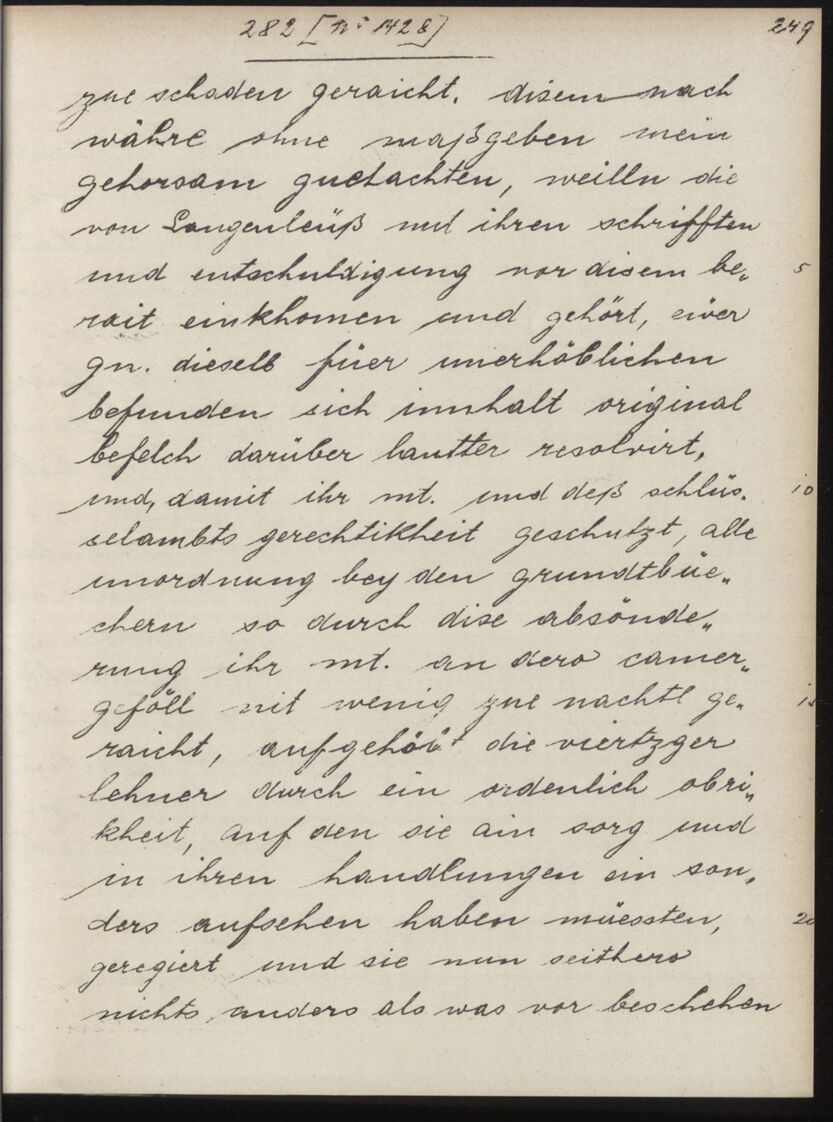 282 [nº 1428] 249
zue schaden geraicht. disem nach
währe ohne maßgeben mein
gehorsam guetachten, weilln die
von Langenleüß mit ihren schrifften
und entschuldigung vor disem be„ 5
rait einkhomen und gehört, eüer
gn. dieselb füer unerhöblichen
befunden sich innhalt original
befelch darüber lautter resolvirt,
und, damit ihr mt. und deß schlüs„ 10
selambts gerechtikheit geschutzt, alle
unordnung bey den grundtbüe„
chern so durch dise absönde„
rung ihr mt. an dero camer„
geföll nit wenig zue nachtl ge„ 15
raicht, aufgehöbt die viertzger
lehner durch ein ordenlich obri„
kheit, auf den sie ain sorg und
in ihren handlungen ein son„
ders aufsehen haben müessten, 20
geregiert und sie nun seithero
nichts anders als was vor beschehen